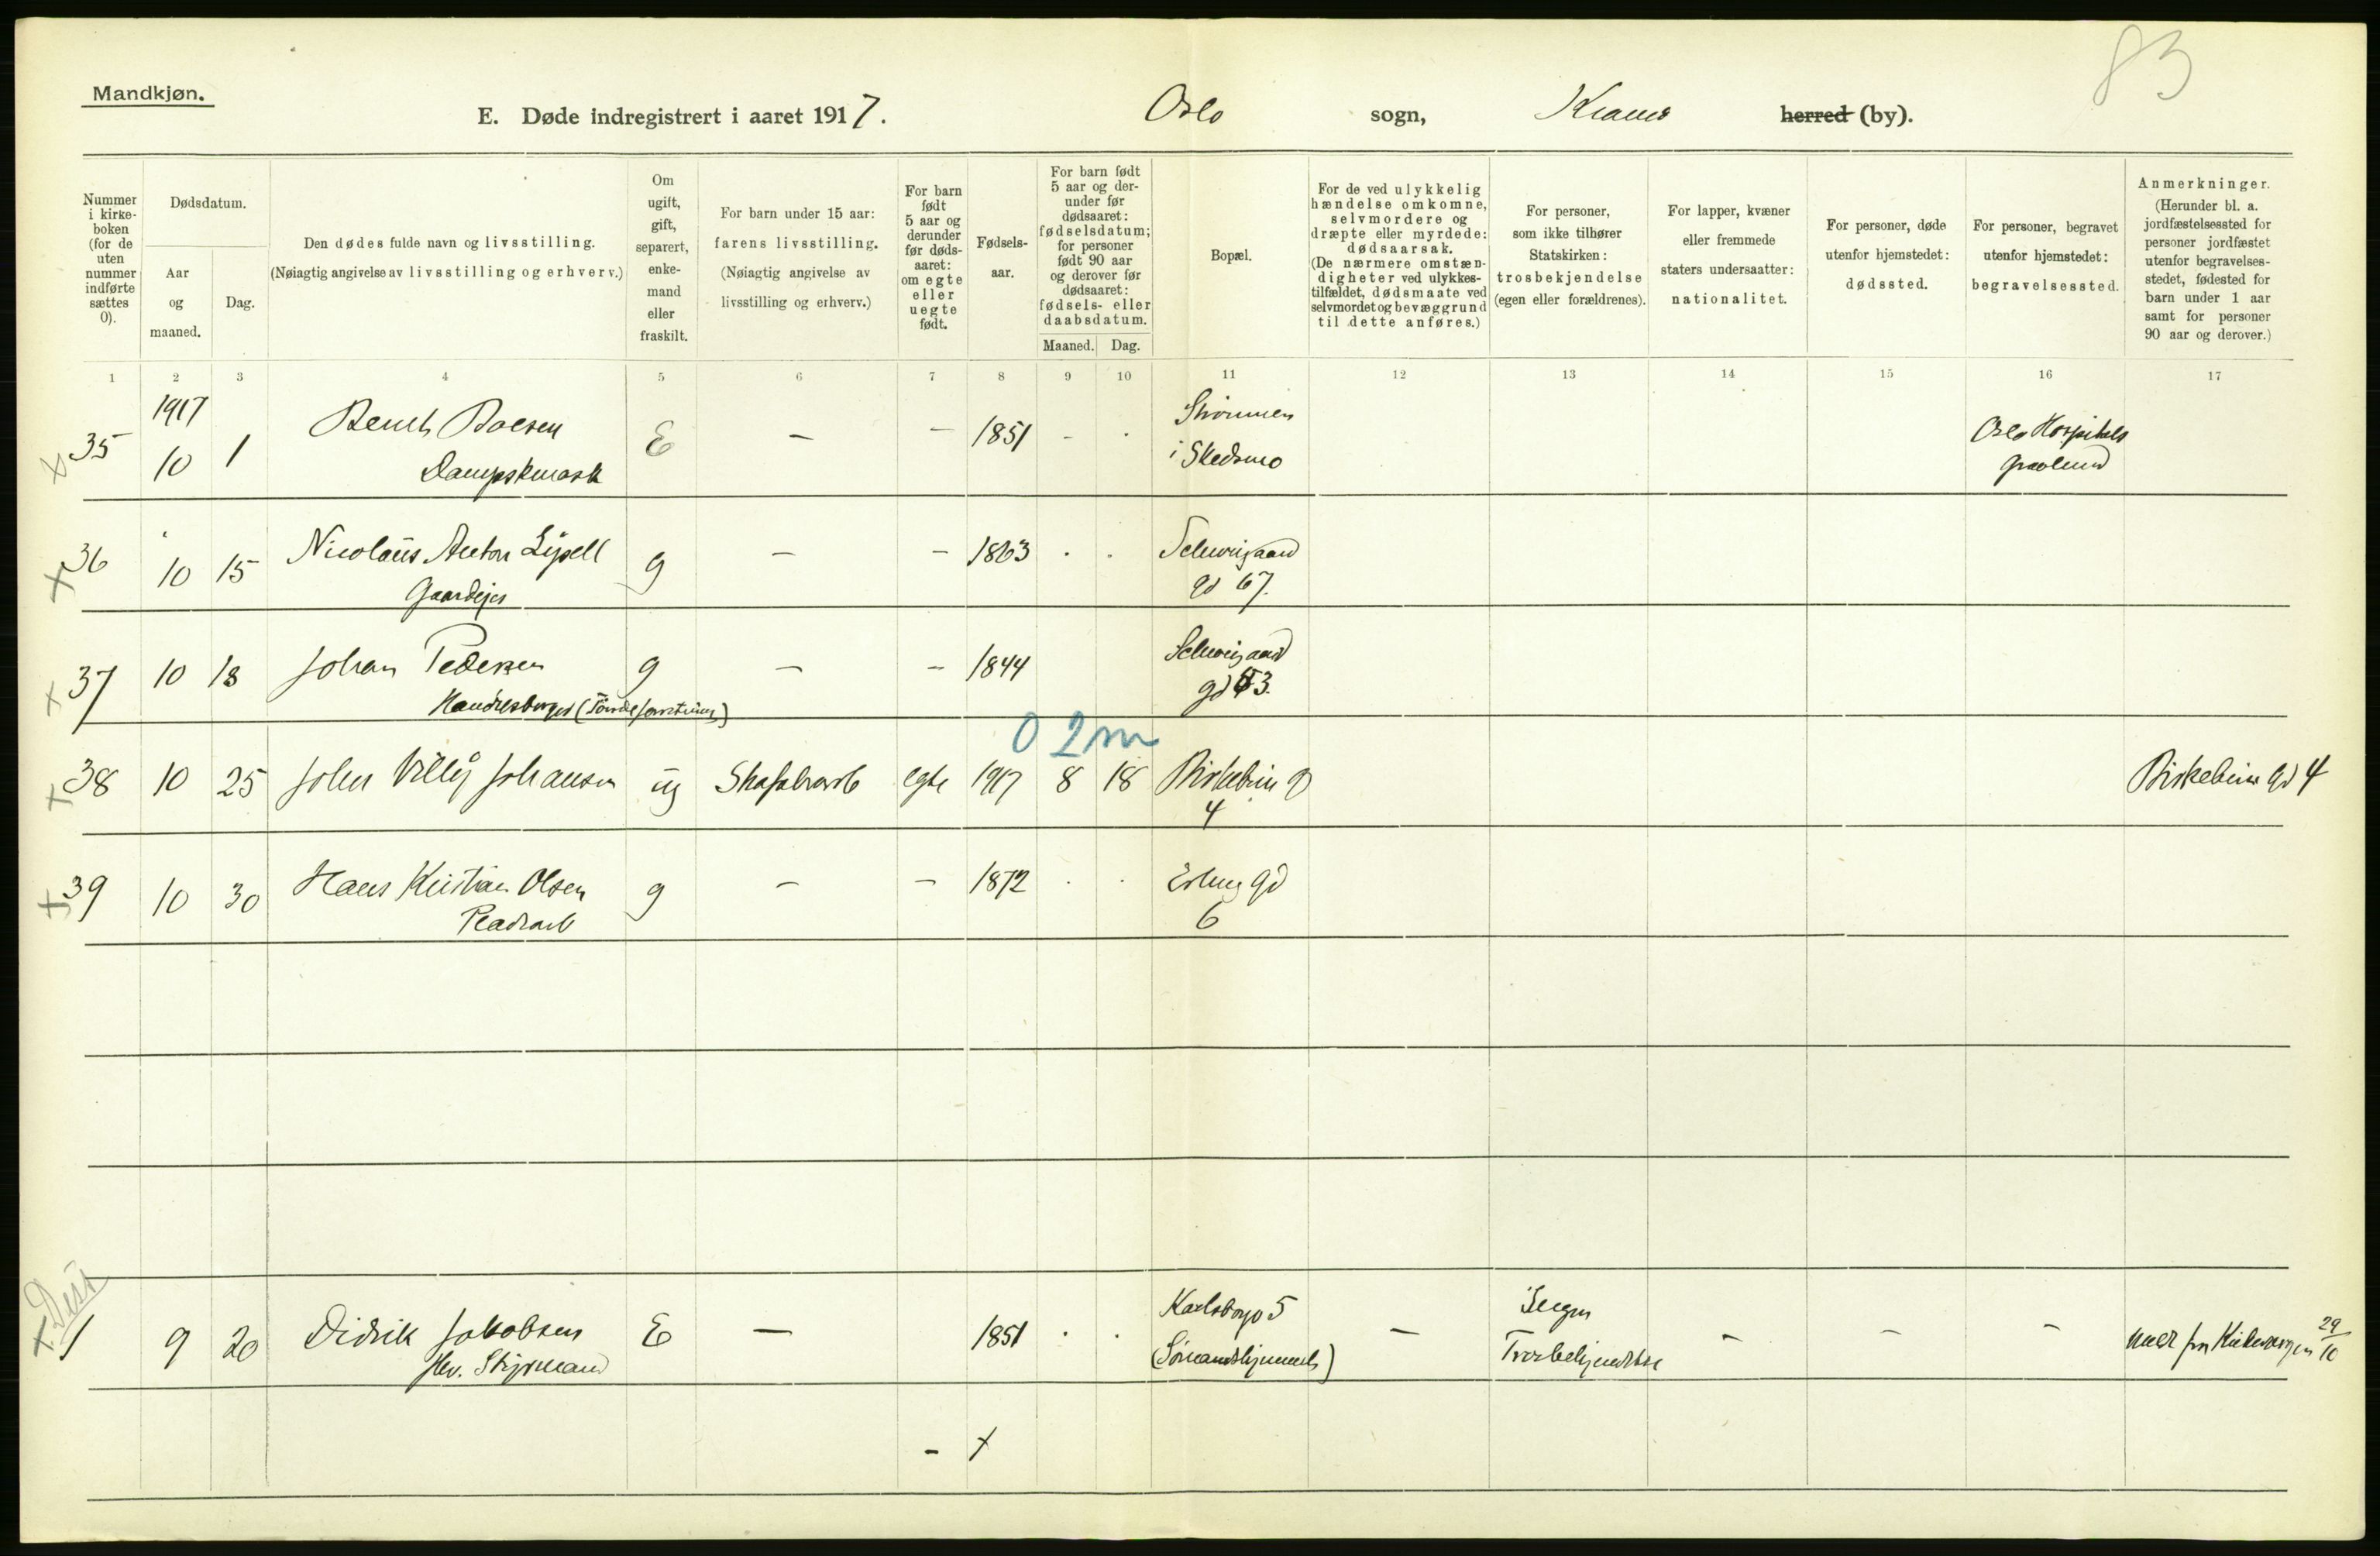 83
Mandkjøn.
E. Døde indregistrert i aaret 1917. Oslo sogn, herred (by).
Nummer i kirke-boken (for de uten nummer indførte sættes 0).
Dødsdatum.
Aar og maaned.
Dag.
Den dødes fulde navn og livsstilling.
(Nøiagtig angivelse av livsstilling og erhverv.)
Om ugift, gift, separert, enke-mand eller fraskilt.
For barn under 15 aar:
farens livsstilling.
(Nøiagtig angivelse av
livsstilling og erhverv.)
For barn født 5 aar og derunder før døds-aaret: om egte eller uegte født.
Fødsels-aar.
For barn født 5 aar og der-under før dødsaaret: fødselsdatum; for personer født 90 aar og derover før dødsaaret: fødsels- eller daabsdatum.
Maaned. Dag.
Bopæl.
For de ved ulykkelig hændelse omkomne, selvmordere og dræpte eller myrdede: dødsaarsak. (De nærmere omstæn-digheter ved ulykkes-tilfældet, dødsmaate ved selvmordet og bevæggrund til dette anføres.)
For personer, som ikke tilhører Statskirken: trosbekjendelse (egen eller forældrenes).
For lapper, kvæner eller fremmede staters undersaatter: nationalitet.
For personer, døde utenfor hjemstedet: dødssted.
For personer, begravet utenfor hjemstedet: begravelsessted.
Anmerkninger.
(Herunder bl. a. jordfæstelsessted for personer jordfæstet utenfor begravelses-stedet, fødested for barn under 1 aar samt for personer 90 aar og derover.)
1 2 3 4 5 6 7 8 9 10 11 12 13 14 15 16 17
1917
35 10 1 Boesen E - - 1851 - . Strømmen
i Skedsmo
Oslo Hospitals
gravlund
36 10 15 Nicolaus Anton Lysell g - - 1863 . . Schweigaard
gd 67.
Gaardejer
37 10 18 Johan Pedersen g - - 1844 Schweigaard
gd 53.
0 2 m
38 10 25 John Villy Johansen ug egte 1917 8 18 Birkebein g
4
Birkebein gd 4
39 10 30 Hans Kristian Olsen g - - 1872 . . Erling gd
6
1 9 20 Didrik Jakobsen E - 1851 . . Karlsborg 5
- Ingen
Trosbekjendelse
- - -
fhv. Styrmand
29/10
- +